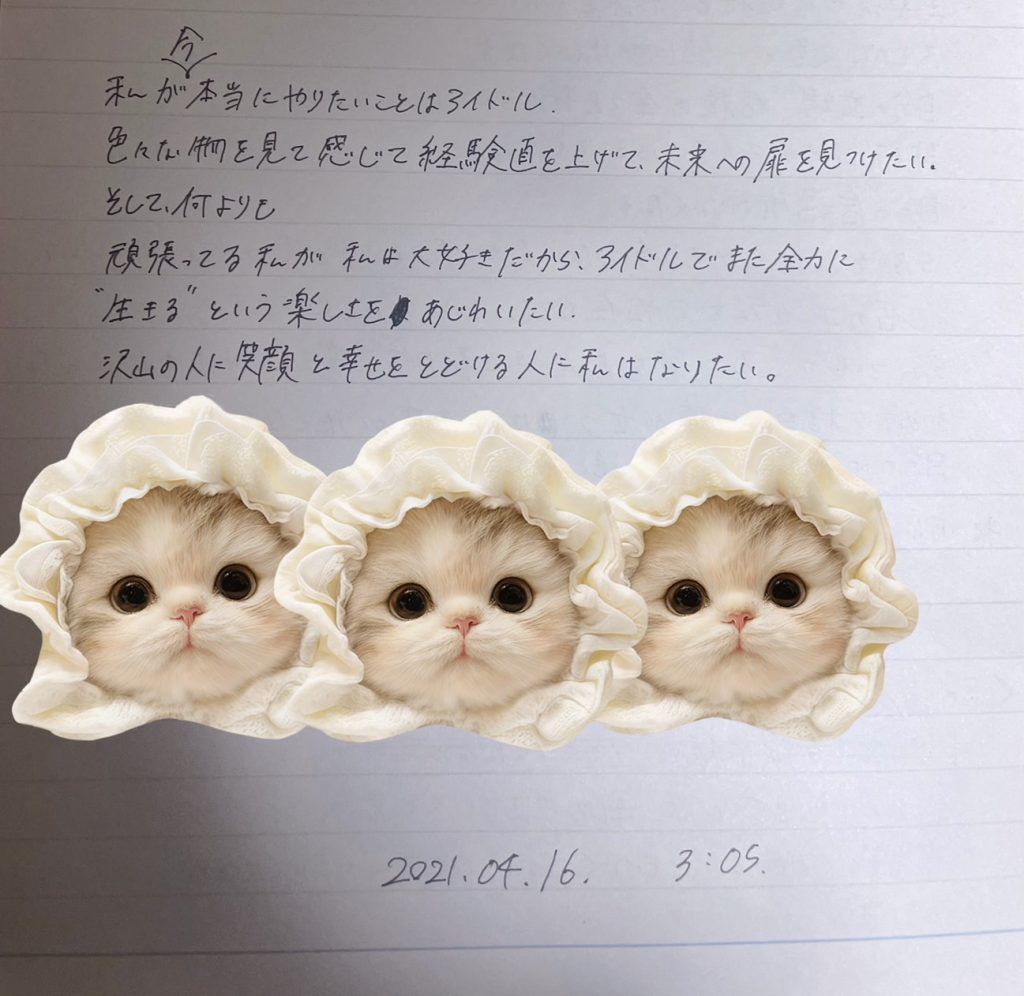 私が今本当にやりたいことはアイドル.
色々な物を見て感じて経験値を上げて、未来への扉を見つけたい。
そして、何よりも
頑張ってる私が私は大好きだから、アイドルでまた全力に
"生きる"という楽しさをあじわいたい.
沢山の人に笑顔と幸せをとどける人に私はなりたい。
2021.04.16. 3:05.